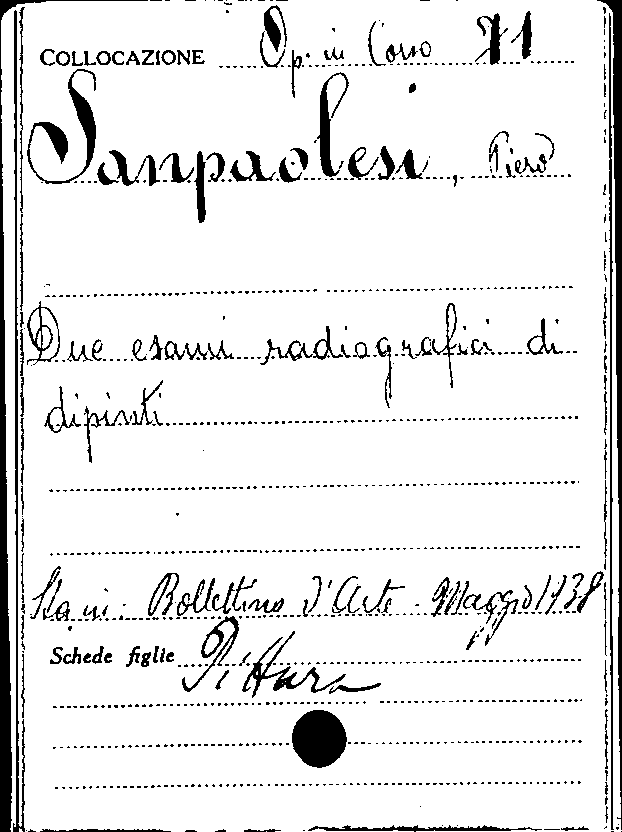 COLLOCAZIONE Op. in Corso 71
Sanpaolesi, Piero
Due esami radiografici di
dipinti
Sta in: Bollettino d'Arte. Maggio 1938
Schede figlie Pittura